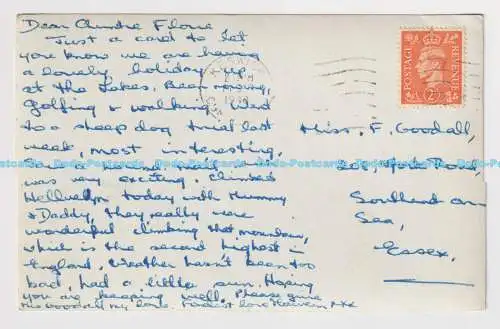 Dear Auntie Florie
Just a card to let
you know we are having
a lovely holiday up
at the Lakes. Been rowing,
golfing & walking. Went
too sheep dog trial last
week, most interesting.
was very exciting. Climbed
Hellvellyn today with Mummy
& Daddy, they really were
wonderful climbing that mountain,
which is the second highest in
England. Weather hasn't been too
bad, had a little sun. Hoping
you are keeping well. Please give
Miss Goodall my love. Fondest love xxx
POSTAGE
REVENUE
2D
Miss. F. Goodall,
Road,
Southend on
Sea,
Essex.
Dodo-Postcards